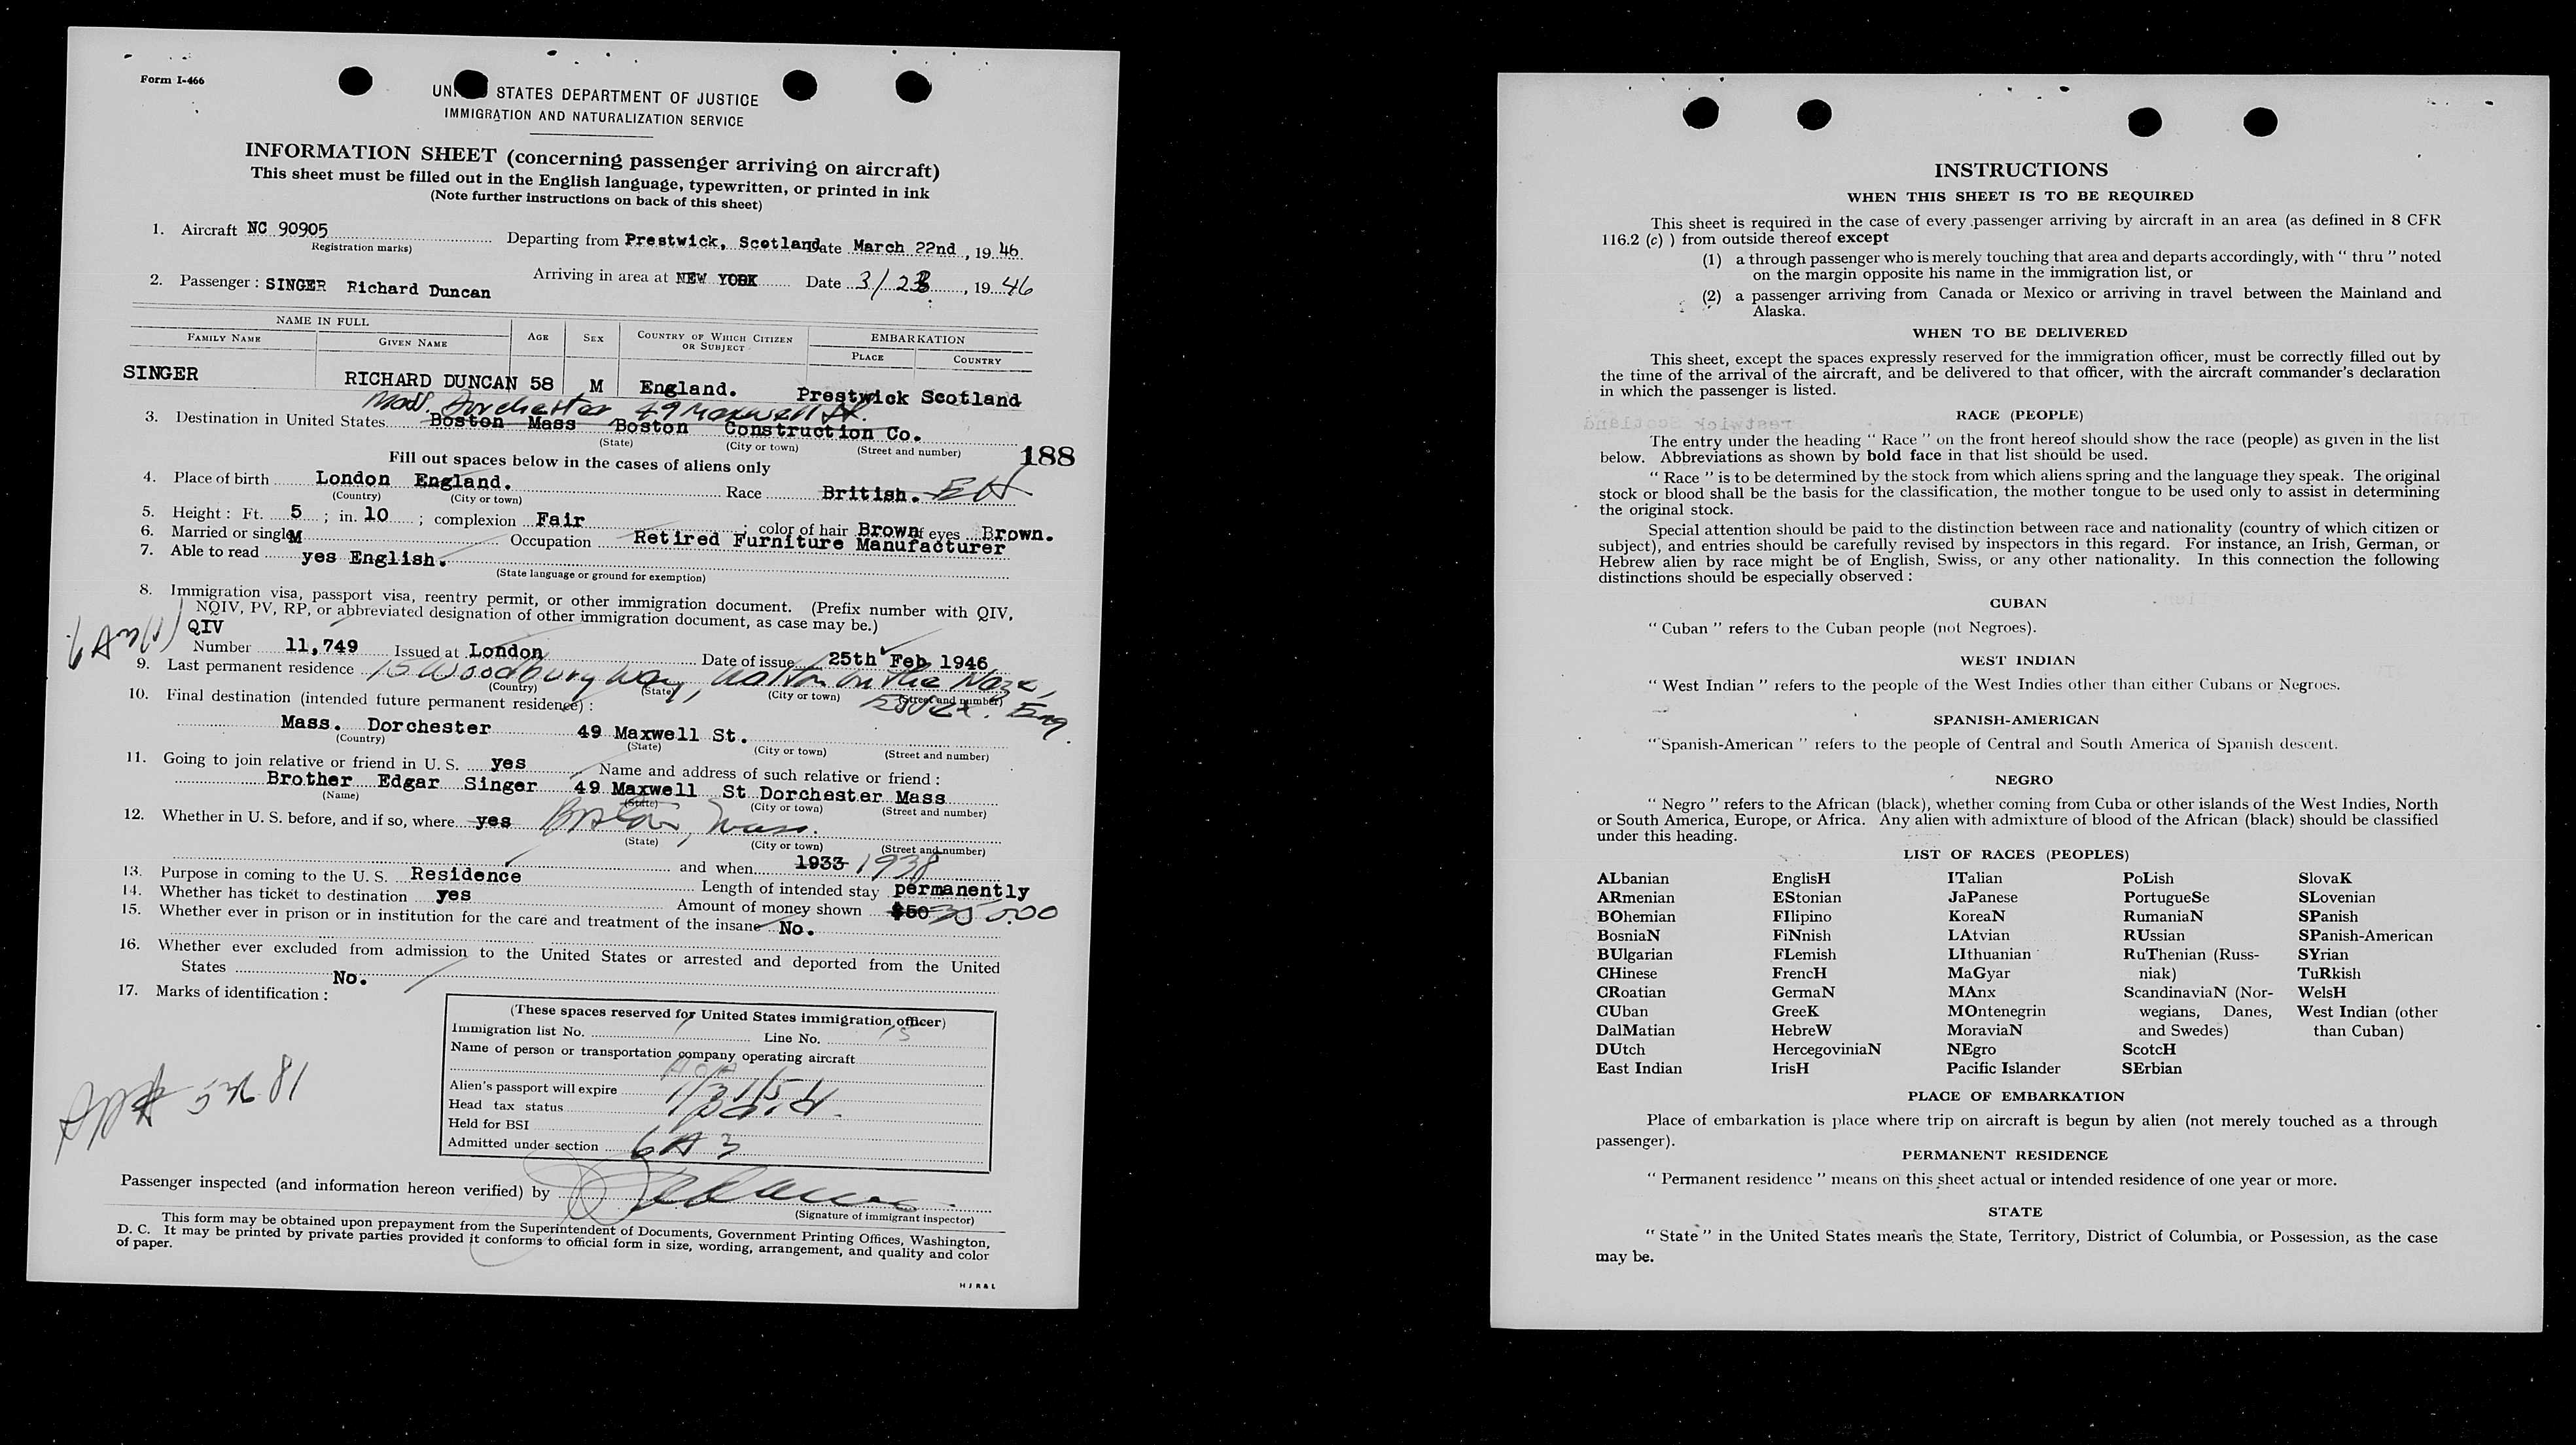 Form I-466
UN STATES DEPARTMENT OF JUSTICE
IMMIGRATION AND NATURALIZATION SERVICE
INFORMATION SHEET (concerning passenger arriving on aircraft)
This sheet must be filled out in the English language, typewritten, or printed in ink
(Note further instructions on back of this sheet)
1. Aircraft NC 90905 Departing from Prestwick, Scotland Date March 22nd, 1946
Registration marks)
2. Passenger : SINGER Richard Duncan Arriving in area at NEW YORK Date 3/23, 1946
NAME IN FULL AGE SEX COUNTRY OF WHICH CITIZEN OR SUBJECT EMBARKATION
FAMILY NAME GIVEN NAME PLACE COUNTRY
SINGER RICHARD DUNCAN 58 M England. Prestwick Scotland
Mass. Dorchester 49 Maxwell St.
3. Destination in United States Boston Mass Boston Construction Co.
(State) (City or town) (Street and number)
188
Fill out spaces below in the cases of aliens only
4. Place of birth London England. Race British. EH
(Country) (City or town)
5. Height : Ft. 5 ; in. 10 ; complexion Fair ; color of hair Brown of eyes Brown.
6. Married or single M Occupation Retired Furniture Manufacturer
7. Able to read yes English.
(State language or ground for exemption)
8. Immigration visa, passport visa, reentry permit, or other immigration document. (Prefix number with QIV,
NQIV, PV, RP, or abbreviated designation of other immigration document, as case may be.)
QIV
Number 11,749 Issued at London Date of issue 25th Feb 1946
9. Last permanent residence 15 Woodbury Way, Walton on the Naze,
(Country) (State) (City or town) (Street and number)
Essex. Eng.
10. Final destination (intended future permanent residence) :
Mass. Dorchester 49 Maxwell St.
(Country) (State) (City or town) (Street and number)
11. Going to join relative or friend in U. S. yes Name and address of such relative or friend :
Brother Edgar Singer 49 Maxwell St Dorchester Mass
(Name) (State) (City or town) (Street and number)
12. Whether in U. S. before, and if so, where yes Boston, Mass.
(State) (City or town) (Street and number)
and when 1933 1938
13. Purpose in coming to the U. S. Residence Length of intended stay permanently
14. Whether has ticket to destination yes Amount of money shown $50 35000
15. Whether ever in prison or in institution for the care and treatment of the insane No.
16. Whether ever excluded from admission to the United States or arrested and deported from the United
States No.
17. Marks of identification :
(These spaces reserved for United States immigration officer)
Immigration list No. 1 Line No. 15
Name of person or transportation company operating aircraft
AOA
Alien's passport will expire 1/31/51
Head tax status
Held for BSI
Admitted under section 6 A 3
Passenger inspected (and information hereon verified) by
(Signature of immigrant inspector)
This form may be obtained upon prepayment from the Superintendent of Documents, Government Printing Offices, Washington,
D. C. It may be printed by private parties provided it conforms to official form in size, wording, arrangement, and quality and color
of paper.
H J R & L
INSTRUCTIONS
WHEN THIS SHEET IS TO BE REQUIRED
This sheet is required in the case of every passenger arriving by aircraft in an area (as defined in 8 CFR
116.2 (c) ) from outside thereof except
(1) a through passenger who is merely touching that area and departs accordingly, with “ thru ” noted
on the margin opposite his name in the immigration list, or
(2) a passenger arriving from Canada or Mexico or arriving in travel between the Mainland and
Alaska.
WHEN TO BE DELIVERED
This sheet, except the spaces expressly reserved for the immigration officer, must be correctly filled out by
the time of the arrival of the aircraft, and be delivered to that officer, with the aircraft commander's declaration
in which the passenger is listed.
RACE (PEOPLE)
The entry under the heading “ Race ” on the front hereof should show the race (people) as given in the list
below. Abbreviations as shown by bold face in that list should be used.
“ Race ” is to be determined by the stock from which aliens spring and the language they speak. The original
stock or blood shall be the basis for the classification, the mother tongue to be used only to assist in determining
the original stock.
Special attention should be paid to the distinction between race and nationality (country of which citizen or
subject), and entries should be carefully revised by inspectors in this regard. For instance, an Irish, German, or
Hebrew alien by race might be of English, Swiss, or any other nationality. In this connection the following
distinctions should be especially observed :
CUBAN
“ Cuban ” refers to the Cuban people (not Negroes).
WEST INDIAN
“ West Indian ” refers to the people of the West Indies other than either Cubans or Negroes.
SPANISH-AMERICAN
“ Spanish-American ” refers to the people of Central and South America of Spanish descent.
NEGRO
“ Negro ” refers to the African (black), whether coming from Cuba or other islands of the West Indies, North
or South America, Europe, or Africa. Any alien with admixture of blood of the African (black) should be classified
under this heading.
LIST OF RACES (PEOPLES)
ALbanian EnglisH ITalian PoLish SlovaK
ARmenian EStonian JaPanese PortugueSe SLovenian
BOhemian FIlipino KoreaN RumaniaN SPanish
BosniaN FiNnish LAtvian RUssian SPanish-American
BUlgarian FLemish LIthuanian RuThenian (Russ- SYrian
CHinese FrencH MaGyar niak) TuRkish
CRoatian GermaN MAnx ScandinaviaN (Nor- WelsH
CUban GreeK MOntenegrin wegians, Danes, West Indian (other
DalMatian HebreW MoraviaN and Swedes) than Cuban)
DUtch HercegoviniaN NEgro ScotcH
East Indian IrisH Pacific Islander SErbian
PLACE OF EMBARKATION
Place of embarkation is place where trip on aircraft is begun by alien (not merely touched as a through
passenger).
PERMANENT RESIDENCE
“ Permanent residence ” means on this sheet actual or intended residence of one year or more.
STATE
“ State ” in the United States means the State, Territory, District of Columbia, or Possession, as the case
may be.